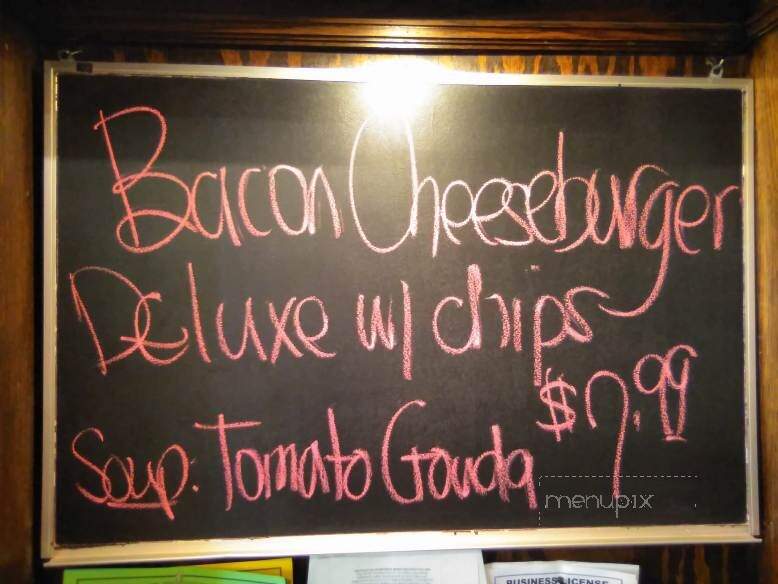 Bacon Cheeseburger
Deluxe w/ chips
$7.99
Soup. Tomato Gouda
menupix
BUSINESS LICENSE